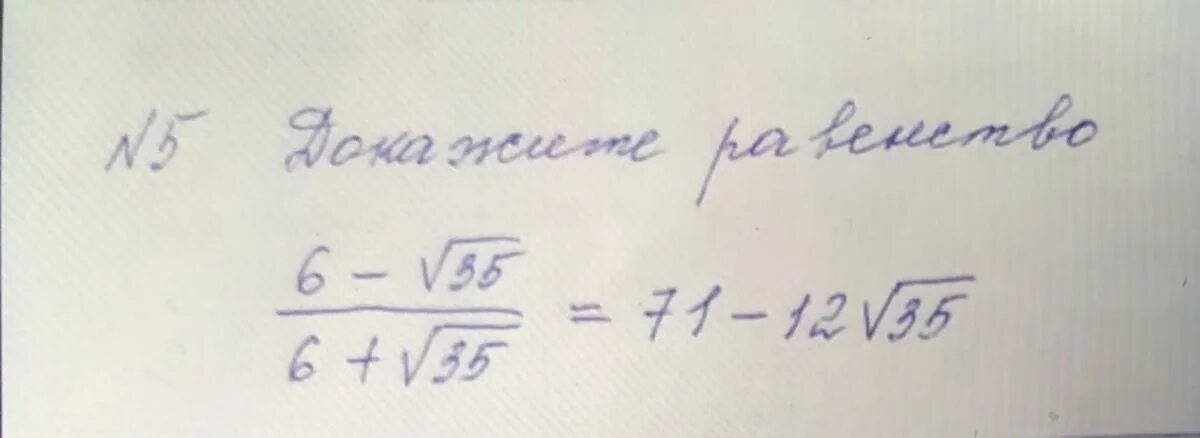 №5 Докажите равенство
6 - √35 / 6 + √35 = 71 - 12√35